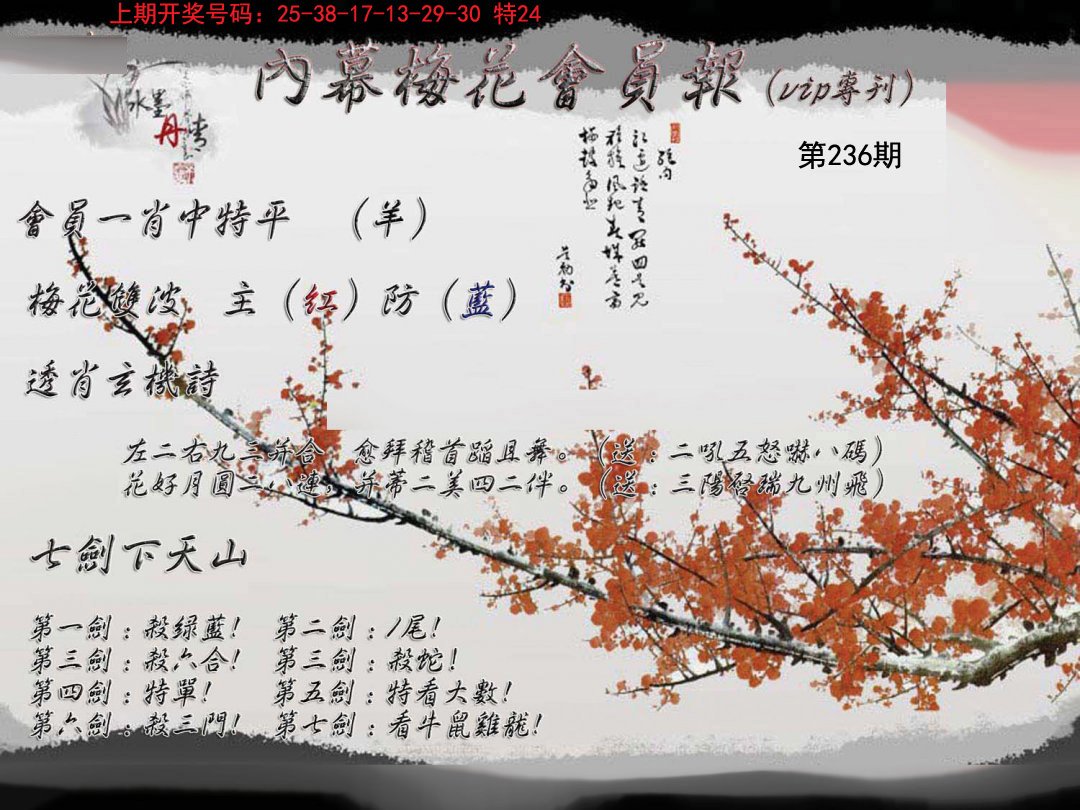 上期开奖号码：25-38-17-13-29-30 特24
內幕梅花會員報（vip專刊）
水墨丹青
第236期
會員一肖中特平 （羊）
梅花雙波 主（紅）防（藍）
透肖玄機詩
左二右九三并合 愈拜稽首蹈且舞。（送：二吼五怒嚇八碼）
花好月圓二八連，并蒂二美四二伴。（送：三陽啓瑞九州飛）
七劍下天山
第一劍：殺綠藍！ 第二劍：1尾！
第三劍：殺六合！ 第三劍：殺蛇！
第四劍：特單！ 第五劍：特看大數！
第六劍：殺三門！ 第七劍：看牛鼠雞龍！